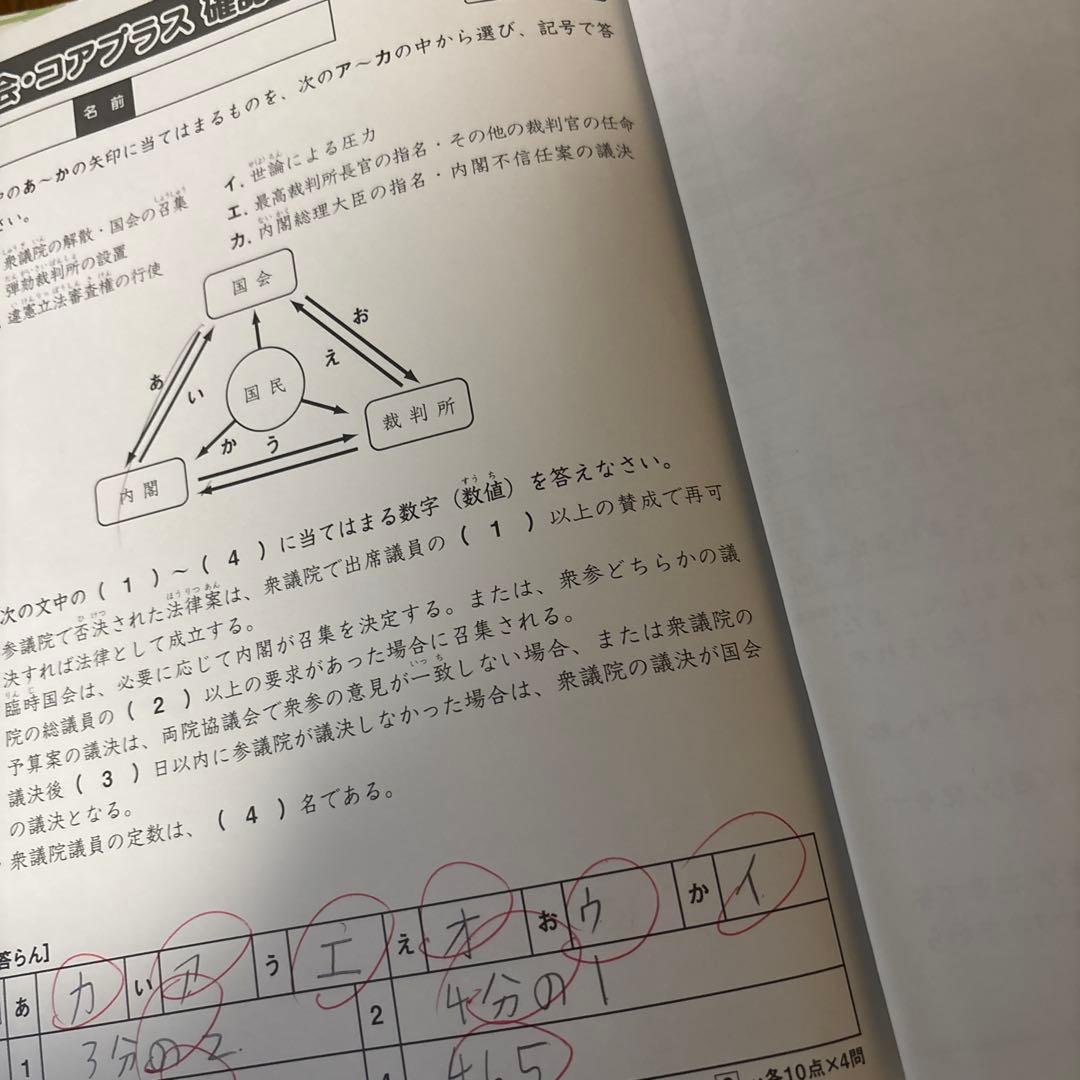 会・コアプラス 確認
名 前
のあ〜かの矢印に当てはまるものを、次のア〜カの中から選び、記号で答
さい。
衆議院の解散・国会の召集
イ. 世論による圧力
弾劾裁判所の設置
エ. 最高裁判所長官の指名・その他の裁判官の任命
違憲立法審査権の行使
カ. 内閣総理大臣の指名・内閣不信任案の議決
国 会
あ
い
お
え
国 民
裁 判 所
か
う
内 閣
次の文中の( 1 )〜( 4 )に当てはまる数字(数値)を答えなさい。
参議院で否決された法律案は、衆議院で出席議員の( 1 )以上の賛成で再可
決すれば法律として成立する。
臨時国会は、必要に応じて内閣が召集を決定する。または、衆参どちらかの議
院の総議員の( 2 )以上の要求があった場合に召集される。
予算案の議決は、両院協議会で衆参の意見が一致しない場合、または衆議院の
議決後( 3 )日以内に参議院が議決しなかった場合は、衆議院の議決が国会
の議決となる。
衆議院議員の定数は、( 4 )名である。
答らん]
あ カ い ア う エ え オ お ウ か イ
1 3分の2 2 4分の1
465
各10点×4問